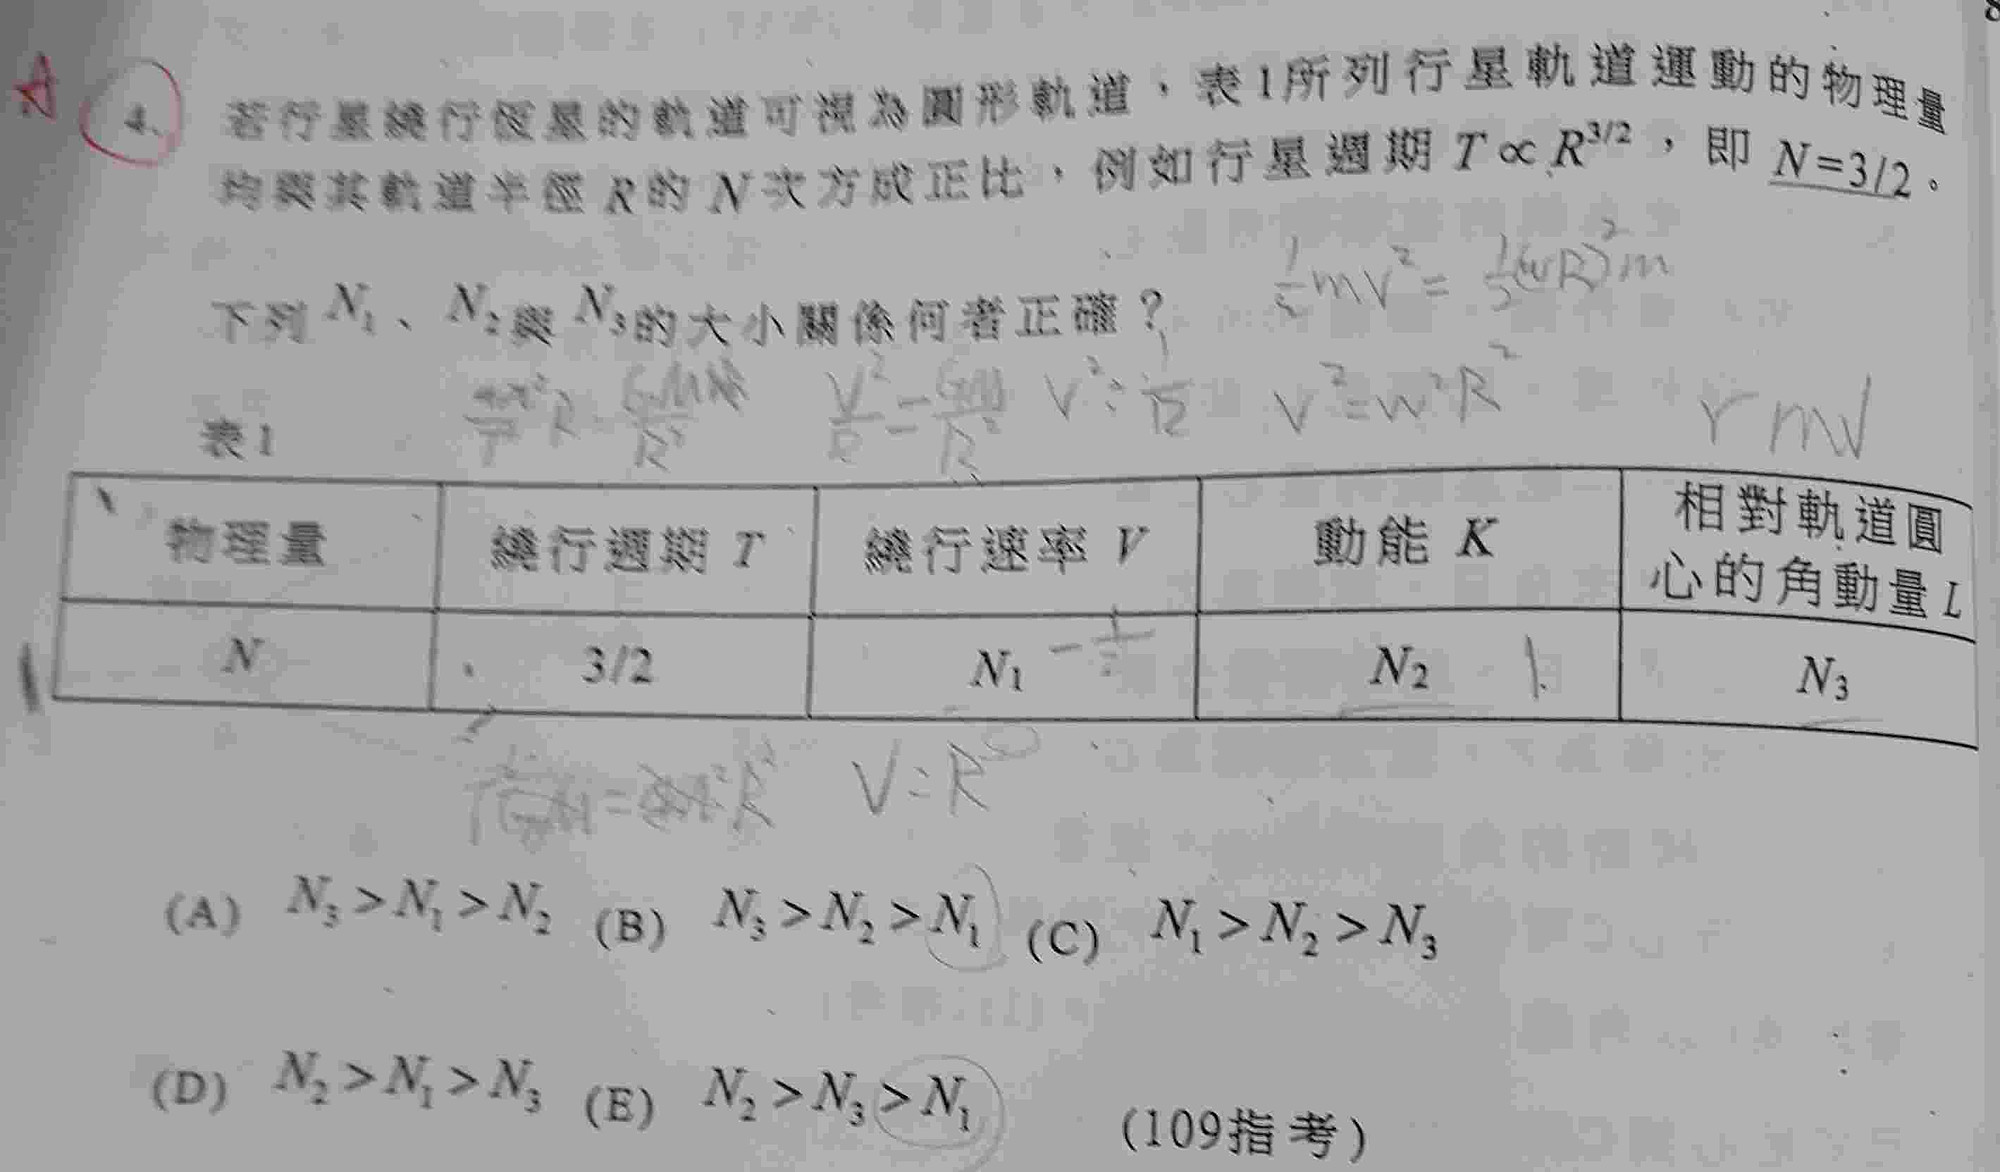 A
4、 若行星繞行恆星的軌道可視為圓形軌道，表1所列行星軌道運動的物理量
均與其軌道半徑 R的 N次方成正比，例如行星週期 T∝R^{3/2}，即 N=3/2。
下列 N₁、N₂與 N₃的大小關係何者正確？
½mv² = ½(wR)²m
V²/R = GM/R² V²∶1/R V²=w²R² rmv
表1
物理量 繞行週期 T 繞行速率 V 動能 K 相對軌道圓
心的角動量 L
N 3/2 N₁ N₂ 1 N₃
V∶R
(A) N₃>N₁>N₂ (B) N₃>N₂>N₁ (C) N₁>N₂>N₃
(D) N₂>N₁>N₃ (E) N₂>N₃>N₁ (109指考)